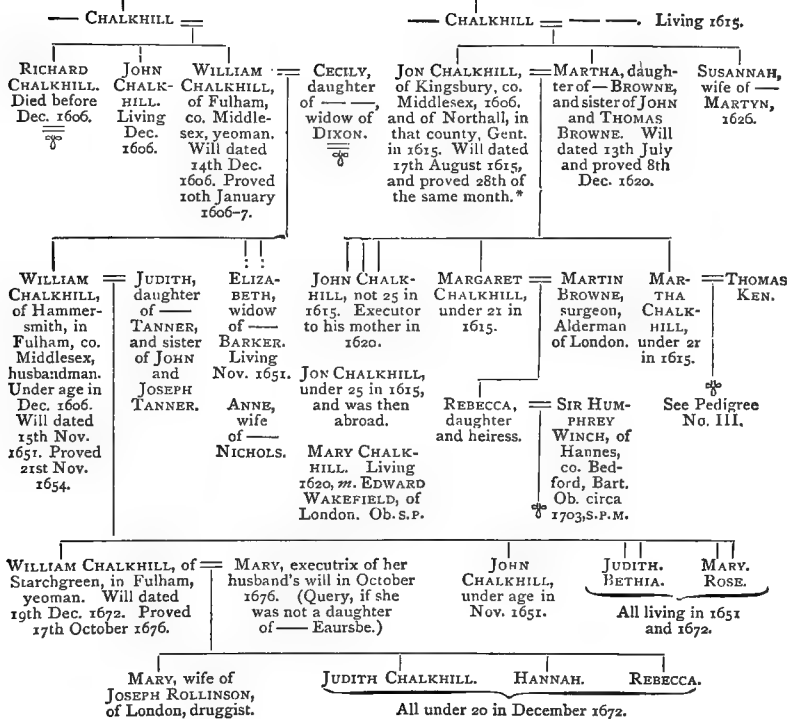 — CHALKHILL
— CHALKHILL — — —. Living 1615.
RICHARD
CHALKHILL.
Died before
Dec. 1606.
JOHN
CHALK-
HILL.
Living
Dec.
1606.
WILLIAM
CHALKHILL,
of Fulham,
co. Middle-
sex, yeoman.
Will dated
14th Dec.
1606. Proved
10th January
1606-7.
CECILY,
daughter
of — —,
widow of
DIXON.
JON CHALKHILL,
of Kingsbury, co.
Middlesex, 1606.
and of Northall, in
that county, Gent.
in 1615. Will dated
17th August 1615,
and proved 28th of
the same month.*
MARTHA, daugh-
ter of — BROWNE,
and sister of JOHN
and THOMAS
BROWNE. Will
dated 13th July
and proved 8th
Dec. 1620.
SUSANNAH,
wife of —
MARTYN,
1626.
WILLIAM
CHALKHILL,
of Hammer-
smith, in
Fulham, co.
Middlesex,
husbandman.
Under age in
Dec. 1606.
Will dated
15th Nov.
1651. Proved
21st Nov.
1654.
JUDITH,
daughter
of —
TANNER,
and sister
of JOHN
and
JOSEPH
TANNER.
ELIZA-
BETH,
widow
of —
BARKER.
Living
Nov. 1651.
ANNE,
wife
of —
NICHOLS.
JOHN CHALK-
HILL, not 25 in
1615. Executor
to his mother in
1620.
JON CHALKHILL,
under 25 in 1615,
and was then
abroad.
MARY CHALK-
HILL. Living
1620, m. EDWARD
WAKEFIELD, of
London. Ob. S.P.
MARGARET
CHALKHILL,
under 21 in
1615.
MARTIN
BROWNE,
surgeon,
Alderman
of London.
MAR-
THA
CHALK-
HILL,
under 21
in 1615.
THOMAS
KEN.
See Pedigree
No. III.
REBECCA,
daughter
and heiress.
SIR HUM-
PHREY
WINCH, of
Hannes,
co. Bed-
ford, Bart.
Ob. circa
1703, S.P.M.
WILLIAM CHALKHILL, of
Starchgreen, in Fulham,
yeoman. Will dated
19th Dec. 1672. Proved
17th October 1676.
MARY, executrix of her
husband's will in October
1676. (Query, if she
was not a daughter
of — Eaursbe.)
JOHN
CHALKHILL,
under age in
Nov. 1651.
JUDITH.
BETHIA.
MARY.
ROSE.
All living in 1651
and 1672.
MARY, wife of
JOSEPH ROLLINSON,
of London, druggist.
JUDITH CHALKHILL. HANNAH. REBECCA.
All under 20 in December 1672.